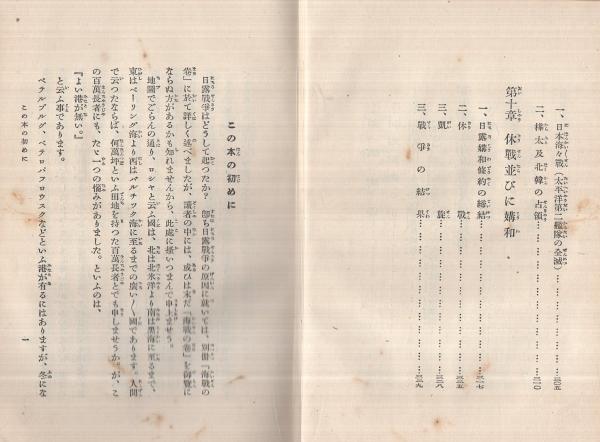 一、日本海々戰(太平洋第二艦隊の全滅)………二〇五
二、樺太及北韓の占領………二一〇
第十章 休戰並びに媾和
一、日露媾和條約の締結………二一七
二、休戰………二二五
三、凱旋………二二八
三、戰爭の結果………二二九
この本の初めに
日露戰爭はどうして起つたか? 卽ち日露戰爭の原因に就いては、別册『海戰の
卷』に於て詳しく述べましたが、讀者の中には、或ひは未だ『海戰の卷』を御覽に
ならぬ方があるかも知れませんから、此處に掻いつまんで申上ませう。
地圖でごらんの通り、ロシヤと云ふ國は、北は北氷洋より南は黑海に至るまで、
東はベーリング海より西はバルチツク海に至るまでの廣い〱國であります。人間
で云つたならば、何萬坪といふ田地を持つた百萬長者とでも申しませうか。が、こ
の百萬長者にも、たつた一つの惱みがありました。といふのは、
『よい港が無い。』
と云ふ事であります。
ペテルブルグ、ペテロパフロウスクなどといふ港が有るにはありますが、冬にな
この本の初めに
一